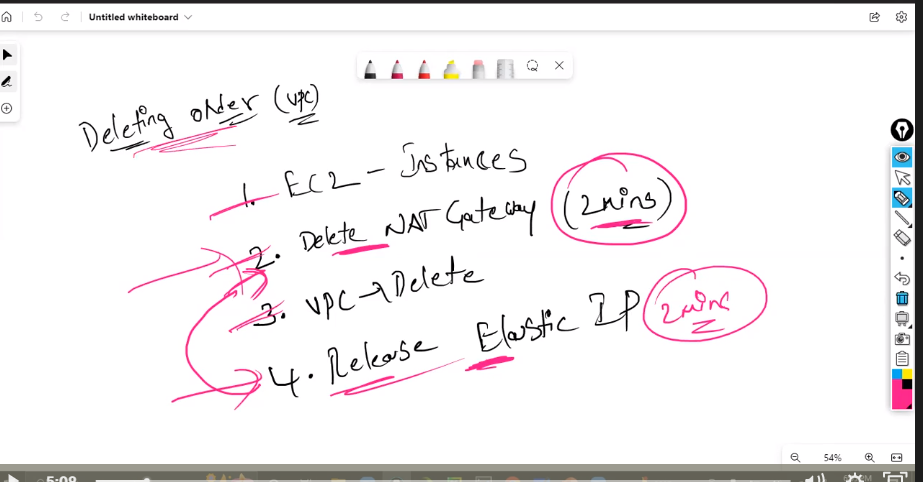 Untitled whiteboard
Deleting order (VPC)
1. EC2 - Instances
2. Delete NAT Gateway (2mins)
3. VPC → Delete
4. Release Elastic IP 2mins
54%
5:09